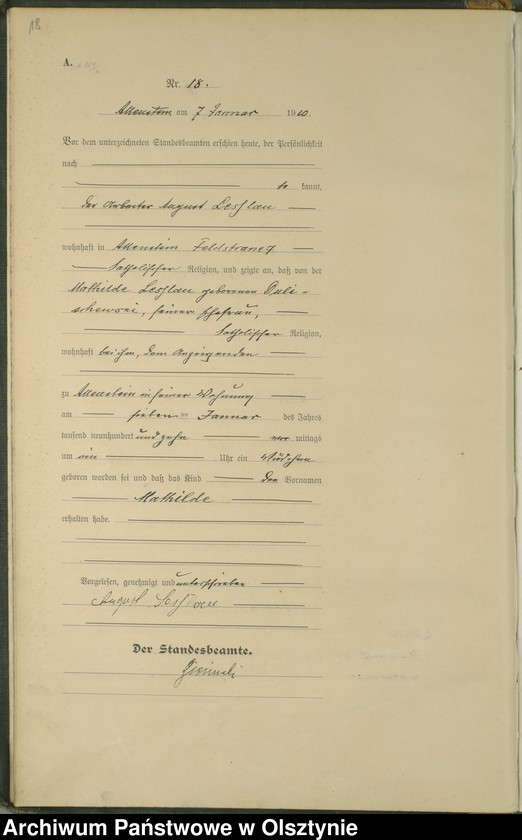 18.
A.
Nr. 18.
Allenstein am 7 Januar 1910.
Vor dem unterzeichneten Standesbeamten erschien heute, der Persönlichkeit
nach
be kannt,
der Arbeiter August Leshlau
wohnhaft in Allenstein Feldstrasse 7
katholischer Religion, und zeigte an, daß von der
Mathilde Leshlau geborenen
seiner Ehefrau,
katholischer Religion,
wohnhaft bei ihm, dem Anzeigenden
zu Allenstein in seiner Wohnung
am sieben ten Januar des Jahres
tausend neunhundert und zehn vor mittags
um ein Uhr ein Mädchen
geboren worden sei und daß das Kind den Vornamen
Mathilde
erhalten habe.
Vorgelesen, genehmigt und unterschrieben
August Leshlau
Der Standesbeamte.
Archiwum Państwowe w Olsztynie